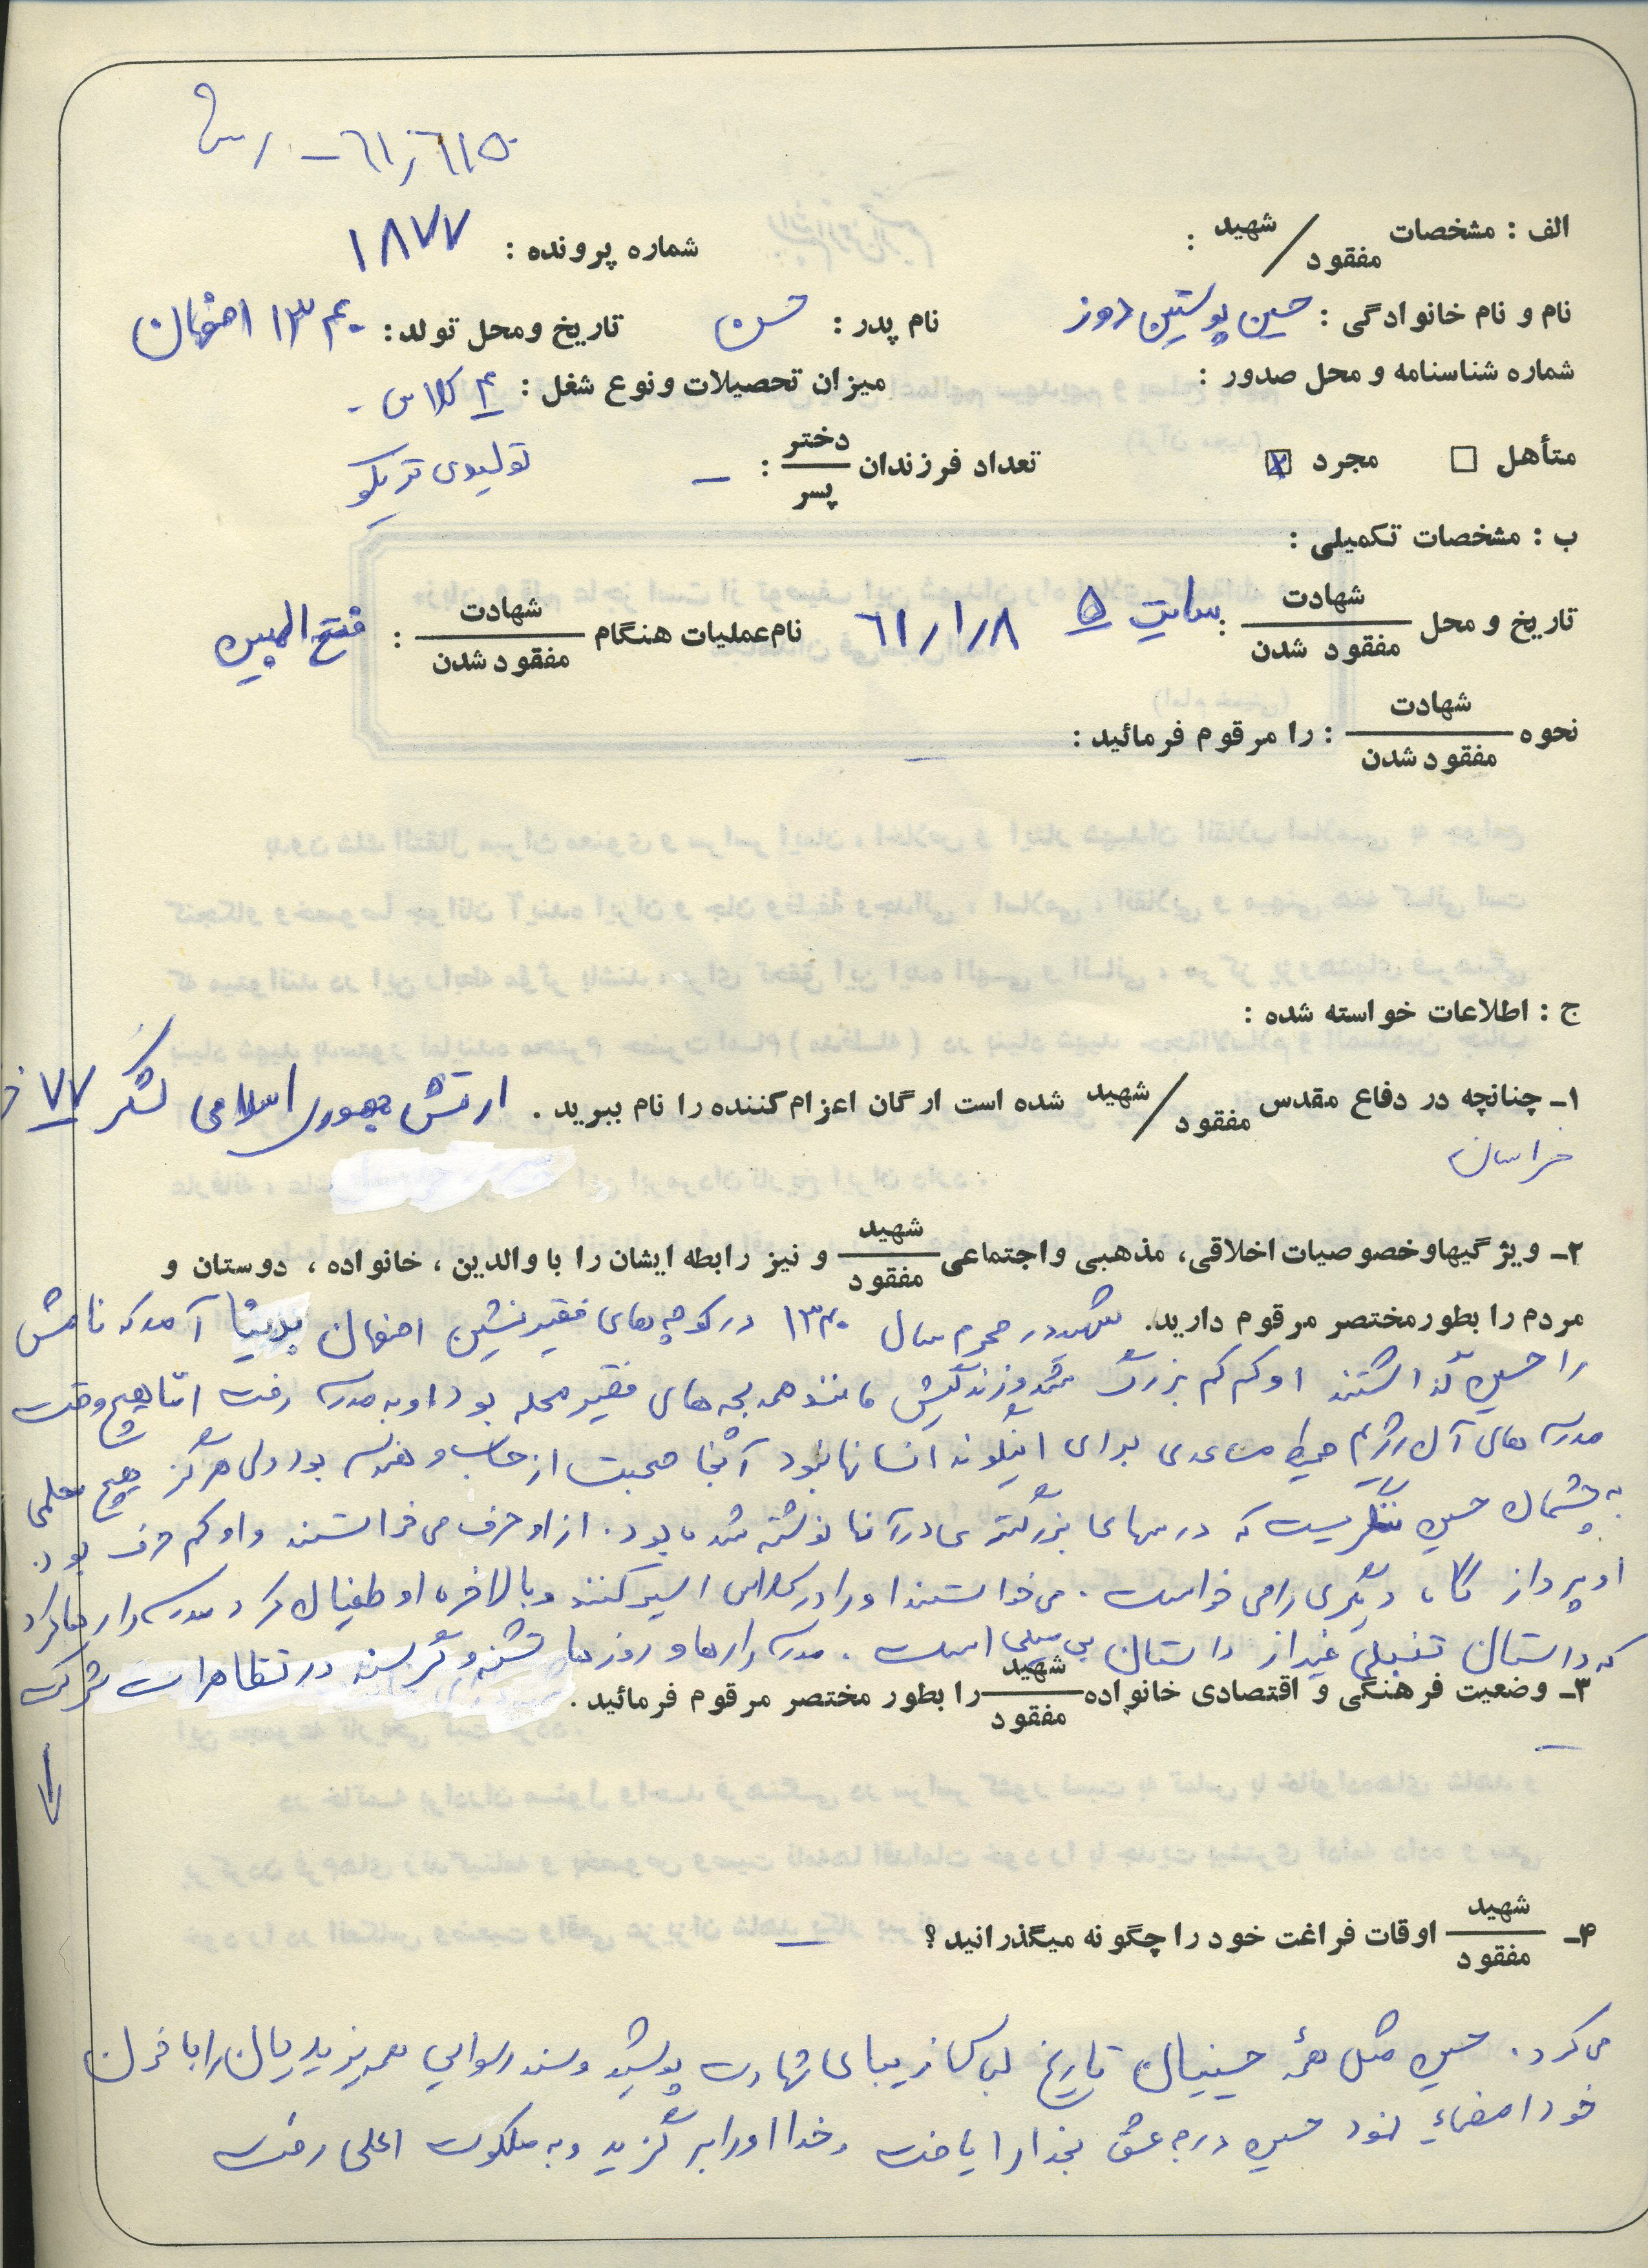 ۶۱٫۶۱۵۰
الف : مشخصات شهید / مفقود :
شماره پرونده : ۱۸۷۷
نام و نام خانوادگی : حسین پوستین دوز نام پدر : حسن تاریخ ومحل تولد : ۱۳۴۰ اصفهان
شماره شناسنامه و محل صدور : میزان تحصیلات ونوع شغل : ۴ کلاس -
متأهل □ مجرد ☒ تعداد فرزندان دختر / پسر : – تولیدی تریکو
ب : مشخصات تکمیلی :
تاریخ و محل شهادت / مفقود شدن : سایت ۵ ۶۱/۱/۸ نام عملیات هنگام شهادت / مفقود شدن : فتح المبین
نحوه شهادت / مفقود شدن : را مرقوم فرمائید : –
ج : اطلاعات خواسته شده :
۱ـ چنانچه در دفاع مقدس شهید / مفقود شده است ارگان اعزام کننده را نام ببرید . ارتش جمهوری اسلامی لشگر ۷۷
خراسان
۲ـ ویژگیهاوخصوصیات اخلاقی، مذهبی واجتماعی شهید / مفقود و نیز رابطه ایشان را با والدین ، خانواده ، دوستان و
مردم را بطور مختصر مرقوم دارید. شهید در محرم سال ۱۳۴۰ در کوچه های فقیر نشین اصفهان بدنیا آمد که نامش
را حسین گذاشتند او کم کم بزرگ شد و زندگیش مانند همه بچه های فقیر محله بود او به مدرسه رفت اما هیچ وقت
مدرسه های آن رژیم محیط مساعدی برای اینگونه انسانها نبود آنجا صحبت از حساب و هندسه بود ولی هرگز هیچ معلمی
به چشمان حسین ننگریست که درسهای بزرگتری در آنها نوشته شده بود . از او حرف می خواستند و او کم حرف بود.
او پرواز گاه دیگری را می خواست . می خواستند او را در کلاس اسیر کنند و بالاخره او طغیان کرد مدرسه را رها کرد
که داستان تنبلی غیر از داستان بی میلی است . مدرسه را رها و روزها تشنه و گرسنه در تظاهرات شرکت
۳ـ وضعیت فرهنگی و اقتصادی خانواده شهید / مفقود را بطور مختصر مرقوم فرمائید .
–
۴ـ شهید / مفقود اوقات فراغت خود را چگونه میگذرانید ؟ –
می کرد . حسین مثل همهٔ حسینیان تاریخ لباس زیبای شهادت پوشید و سند رسوایی همه یزیدیان را با خون
خود امضاء نمود حسین درجه عشق بخدا را یافت و خدا او را برگزید و به ملکوت اعلی رفت